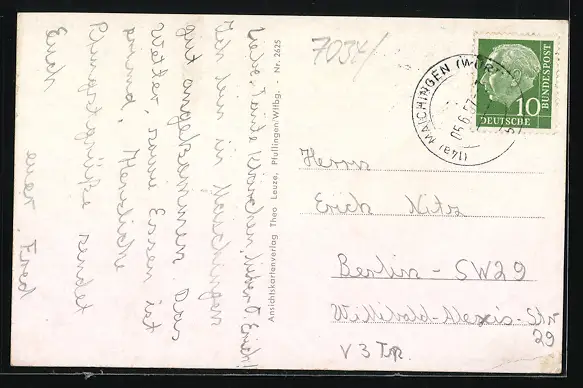 Liebe Tante Klärchen, lieber O. Erich!
Ich bin in Maichingen
gut angekommen. Das
Wetter, sowie Essen ist
prima. Herzliche
Pfingstgrüße sendet
Euch
euer Fred
Ansichtskartenverlag Theo Leuze, Pfullingen/Wttbg. - Nr. 2625
7034/
(14a) MAICHINGEN (WÜR
05.6.57
DEUTSCHE
BUNDESPOST
10
Herrn
Erich Nitz
Berlin - SW29
Willibald-Alexis-Str
29
V 3 Trp.